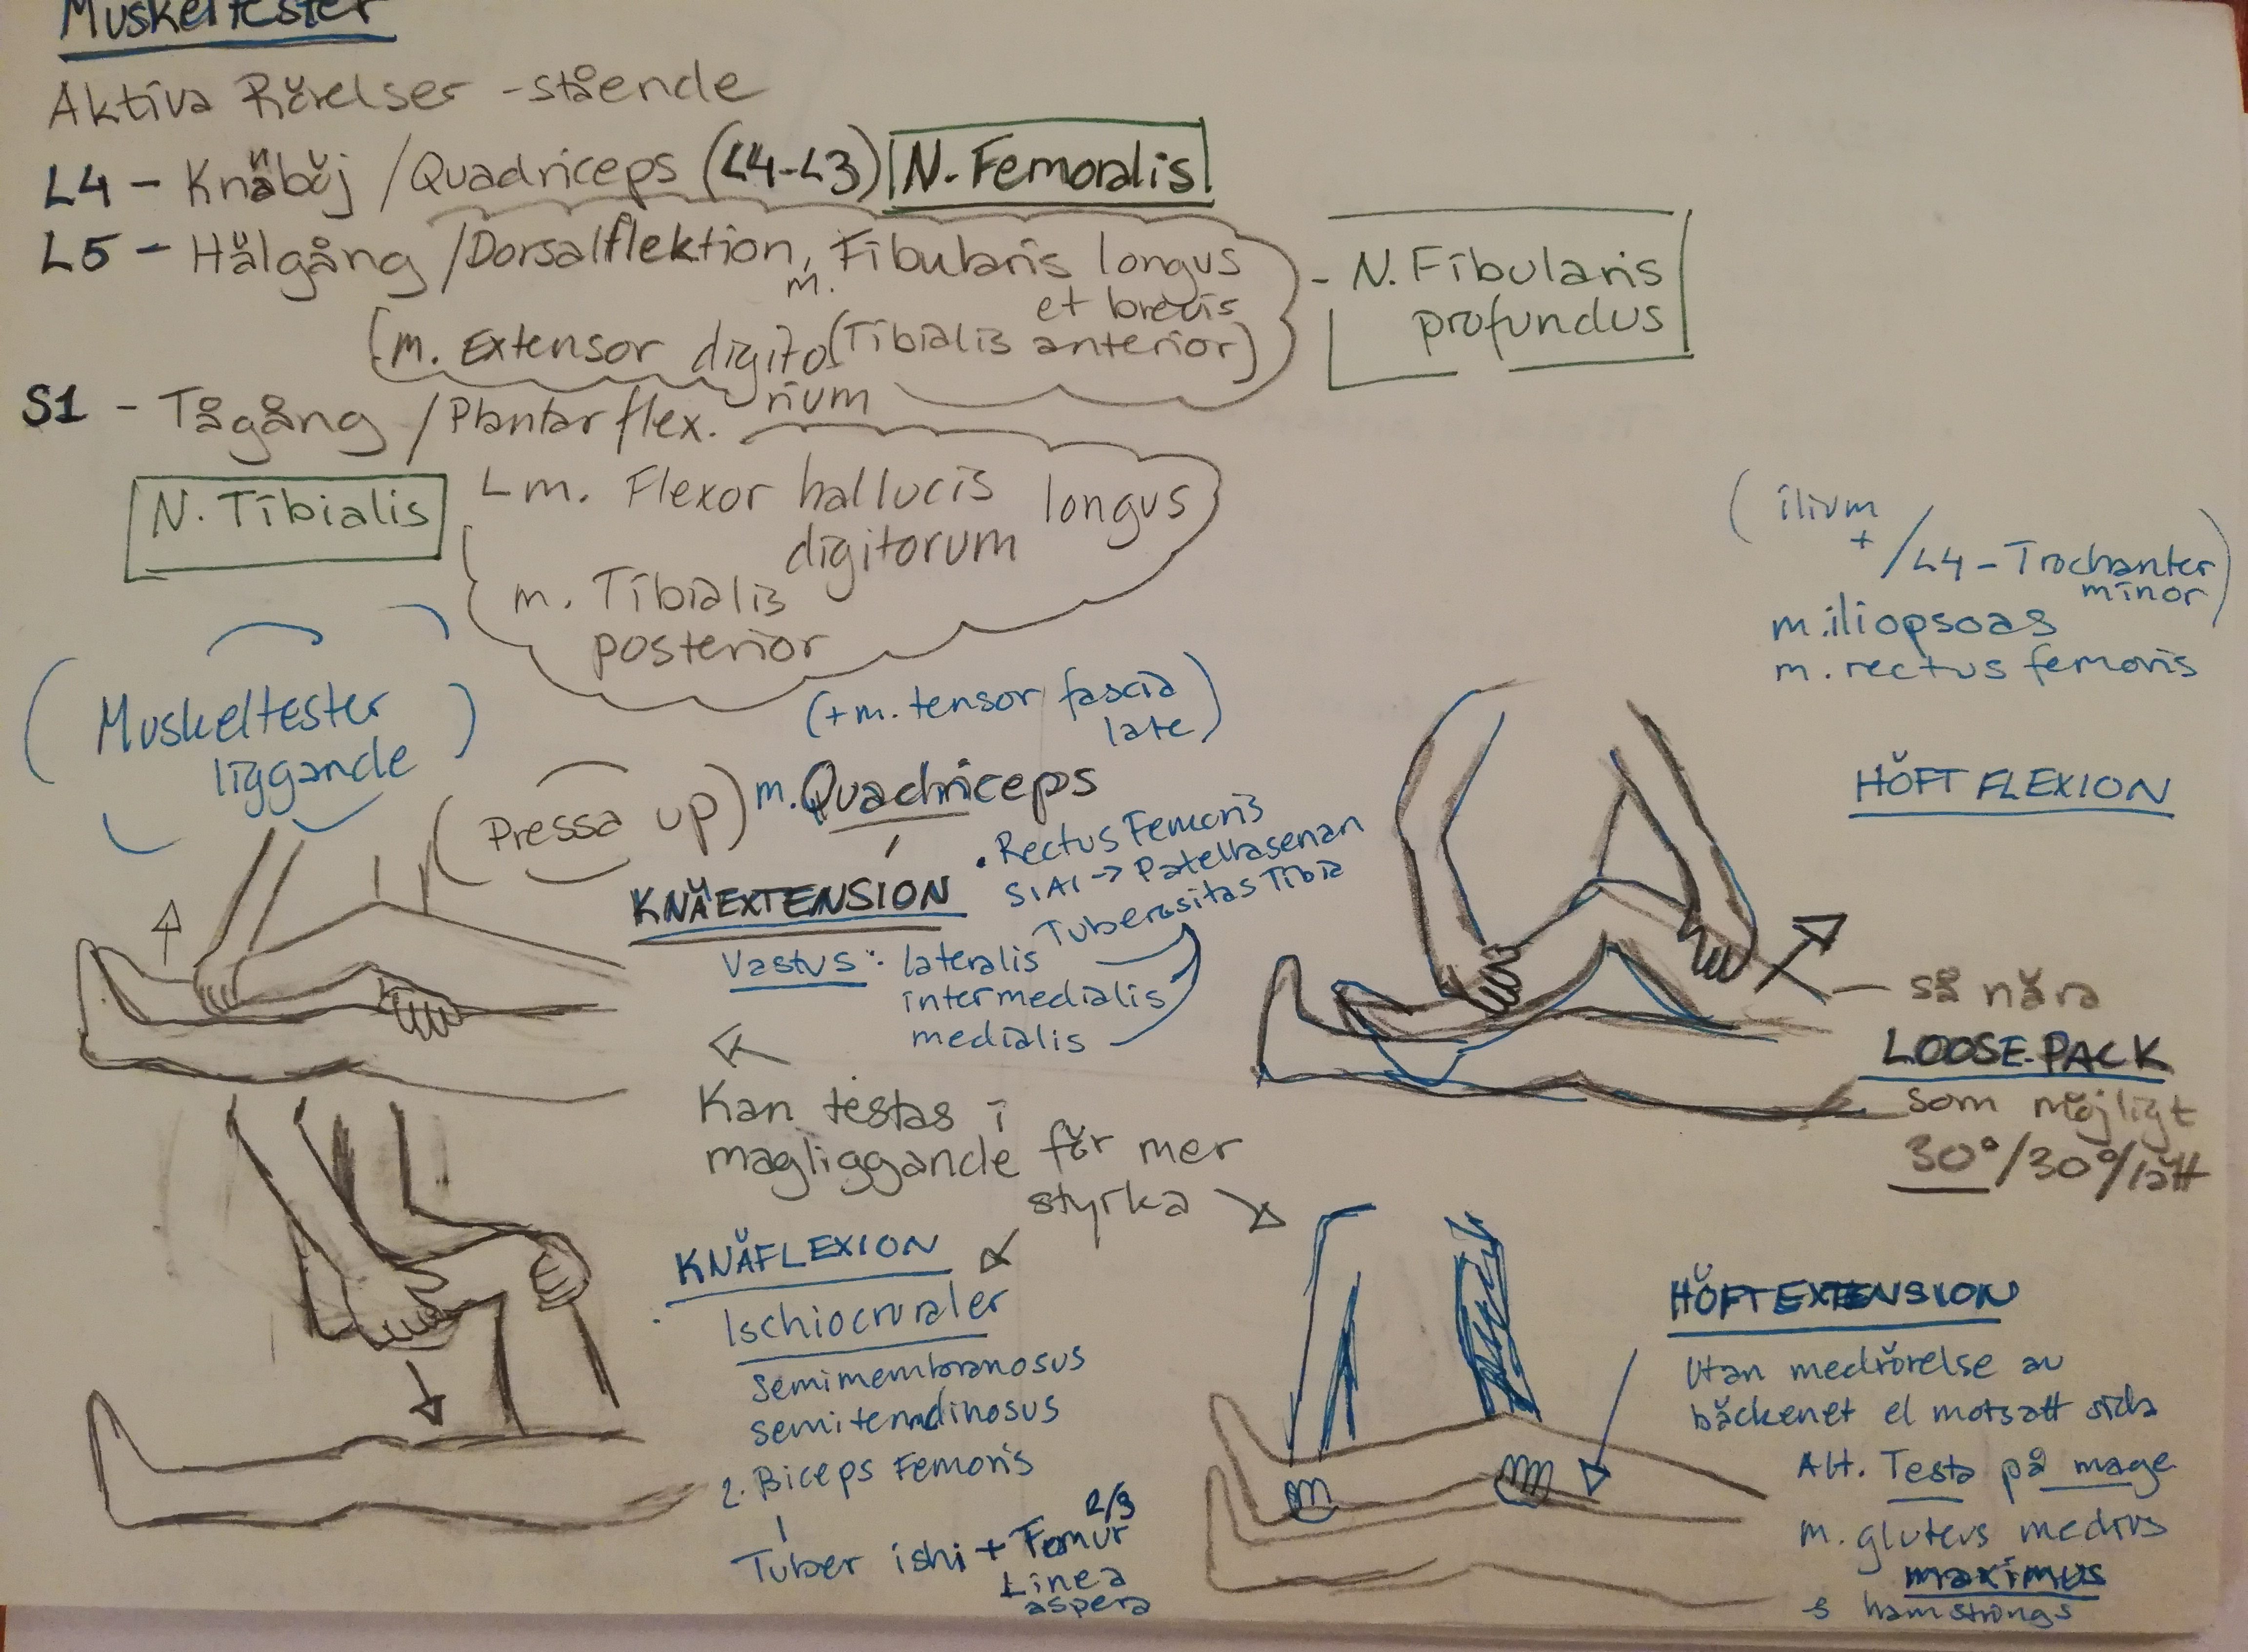 Muskeltester
Aktiva Rörelser - stående
L4 - Knäböj / Quadriceps (L4-L3) N. Femoralis
L5 - Hälgång / Dorsalflektion, m. Fibularis longus
et brevis
(m. Extensor digito (Tibialis anterior)
rium
- N. Fibularis
profundus
S1 - Tågång / Plantarflex.
N. Tibialis
m. Flexor hallucis longus
digitorum
m. Tibialis
posterior
(Muskeltester
liggande)
(Pressa up)
(+m. tensor fascia
late)
m. Quadriceps
KNÄEXTENSION
• Rectus Femoris
SIAI → Patellrasenan
Tuberositas Tibia
Vastus: lateralis
intermedialis
medialis
Kan testas i
magliggande för mer
styrka
(ilium
+ / L4 - Trochanter
minor)
m. iliopsoas
m. rectus femoris
HÖFTFLEXION
så nära
LOOSE-PACK
som möjligt
30°/30°/lätt
KNÄFLEXION
Ischiocruraler
semimembranosus
semitendinosus
2. Biceps Femoris
Tuber ishi + Femur 2/3
Linea
aspera
HÖFTEXTENSION
Utan medrörelse av
bäckenet el motsatt sida
Alt. Testa på mage
m. gluteus medius
maximus
hamstrings